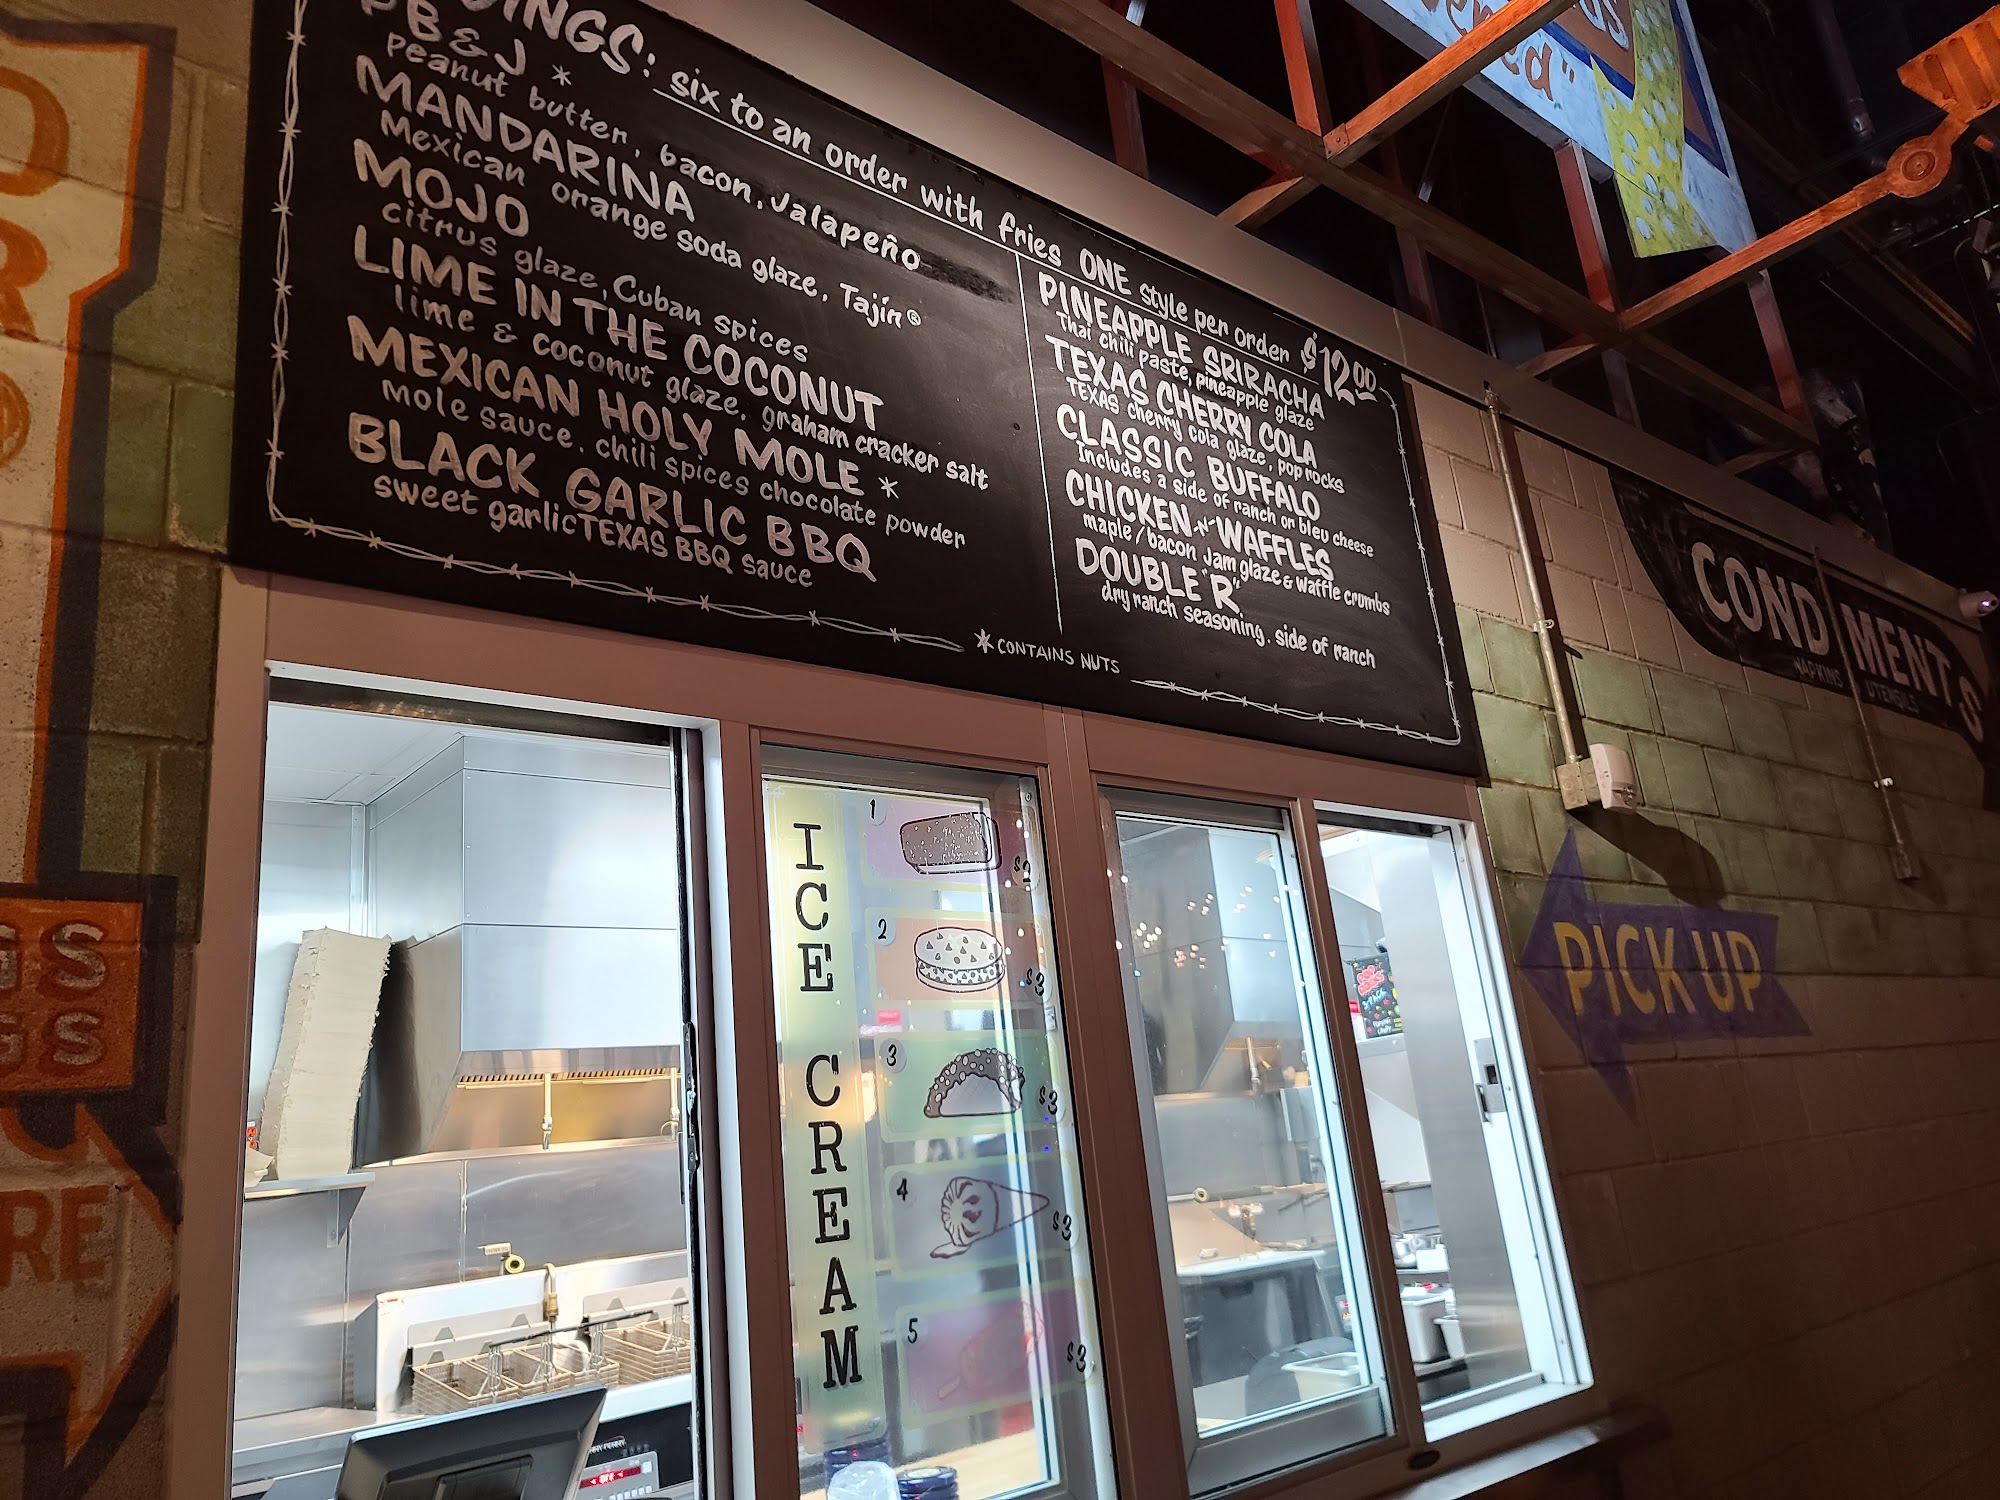 six to an order with fries ONE style per order $12.00
PB & J *
peanut butter, bacon, jalapeño
MANDARINA
Mexican orange soda glaze, Tajín®
MOJO
citrus glaze, Cuban spices
LIME IN THE COCONUT
lime & coconut glaze, graham cracker salt
MEXICAN HOLY MOLE *
mole sauce, chili spices chocolate powder
BLACK GARLIC BBQ
sweet garlic TEXAS BBQ sauce
PINEAPPLE SRIRACHA
Thai chili paste, pineapple glaze
TEXAS CHERRY COLA
TEXAS cherry cola glaze, pop rocks
CLASSIC BUFFALO
includes a side of ranch or bleu cheese
CHICKEN -N- WAFFLES
maple/bacon jam glaze & waffle crumbs
DOUBLE "R"
dry ranch seasoning, side of ranch
* CONTAINS NUTS
CONDIMENTS
NAPKINS UTENSILS
PICK UP
ICE CREAM
1 $2
2 $3
3 $3
4 $3
5 $3